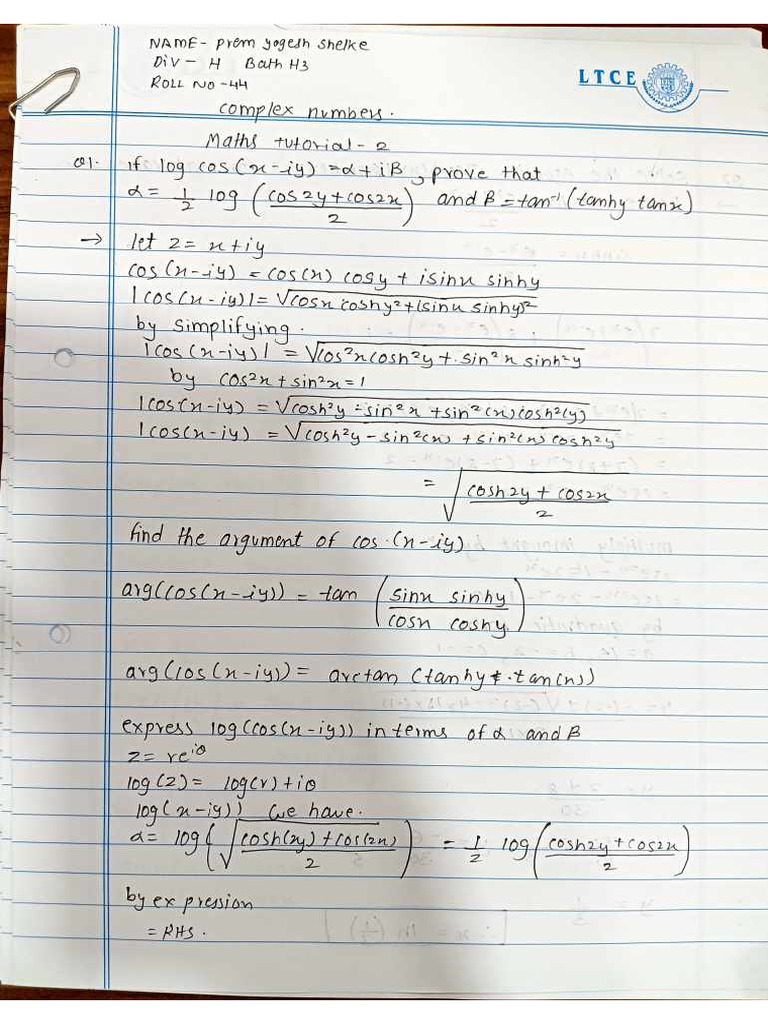 NAME - Prem yogesh shelke
Div - H Bath H3
ROLL NO - 44
LTCE
complex numbers.
Maths tutorial - 2
Q1. if log cos(x-iy) = α + iB, prove that
α = 1/2 log (cos2y+cos2x / 2) and B = tan⁻¹ (tanhy tanx)
→ let z = x+iy
cos(x-iy) = cos(x) cosy + isinx sinhy
|cos(x-iy)| = √cosx coshy² + (sinx sinhy)²
by simplifying.
|cos(x-iy)| = √cos²x cosh²y + sin²x sinh²y
by cos²x + sin²x = 1
|cos(x-iy) = √cosh²y - sin²x + sin²(x) cosh²(y)
|cos(x-iy) = √cosh²y - sin²(x) + sin²(x) cosh²y
= √cosh2y + cos2x / 2
find the argument of cos.(x-iy)
arg(cos(x-iy)) = tan (sinx sinhy / cosx coshy)
arg(cos(x-iy)) = arctan (tanhy .tan(x))
express log(cos(x-iy)) in terms of α and B
z = re^iθ
log(z) = log(r) + iθ
log(x-iy)) we have.
α = log(√cosh(2y) + cos(2x) / 2) = 1/2 log(cosh2y + cos2x / 2)
by expression
= RHS.